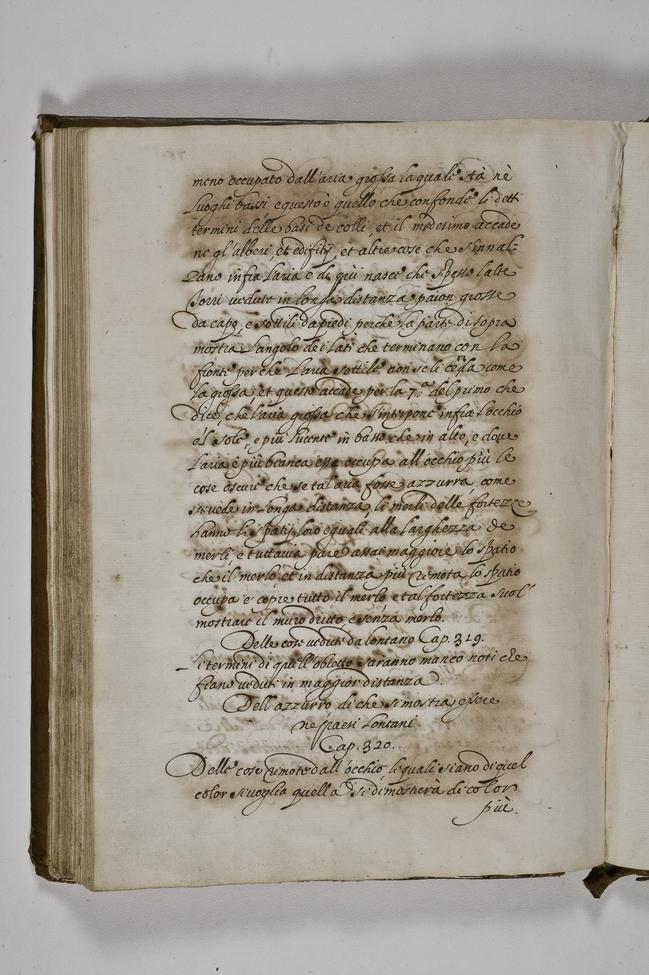 meno occupato dall'aria grossa la quale stà nè
luoghi bassi e questo è quello che confonde li detti
termini delle basi de colli, et il medesimo accade
ne gl'alberi, et edifitij, et altre cose che s'innal-
zano infra l'aria e di qui nasce che spesso l'alte
Torri vedute in longa distanza paion grosse
da capo, e sottili da piedi, perche la parte di sopra
mostra l'angolo de i lati che terminano con la
fronte perche l'aria sottile non se li cela come
la grossa et questo accade per la 7.a del primo che
dice, che l'aria grossa che s'interpone infra l'occhio
e'l sole, e più lucente in basso che in alto, e dove
l'aria è più bianca essa occupa all'occhio più le
cose oscure che se tal aria fosse azzurra, come
si vede in longa distanza, li merli delle fortezze
hanno li spatij loro equali alla larghezza de
merli, e tuttavia pare assai maggiore lo spatio
che il merlo, et in distanza più remota lo spatio
occupa e copre tutto il merlo e tal fortezza suol
mostrare il muro dritto e senza merlo.
Delle cose vedute da lontano Cap. 319.
li termini di quell'obietto saranno manco noti che
fiano veduti in maggior distanza
Dell'azzurro di che si mostra essere
ne paesi lontani
Cap. 320.
Delle cose remote dall'occhio, le quali siano di quel
color si voglia quella si dimosterà di color
più.